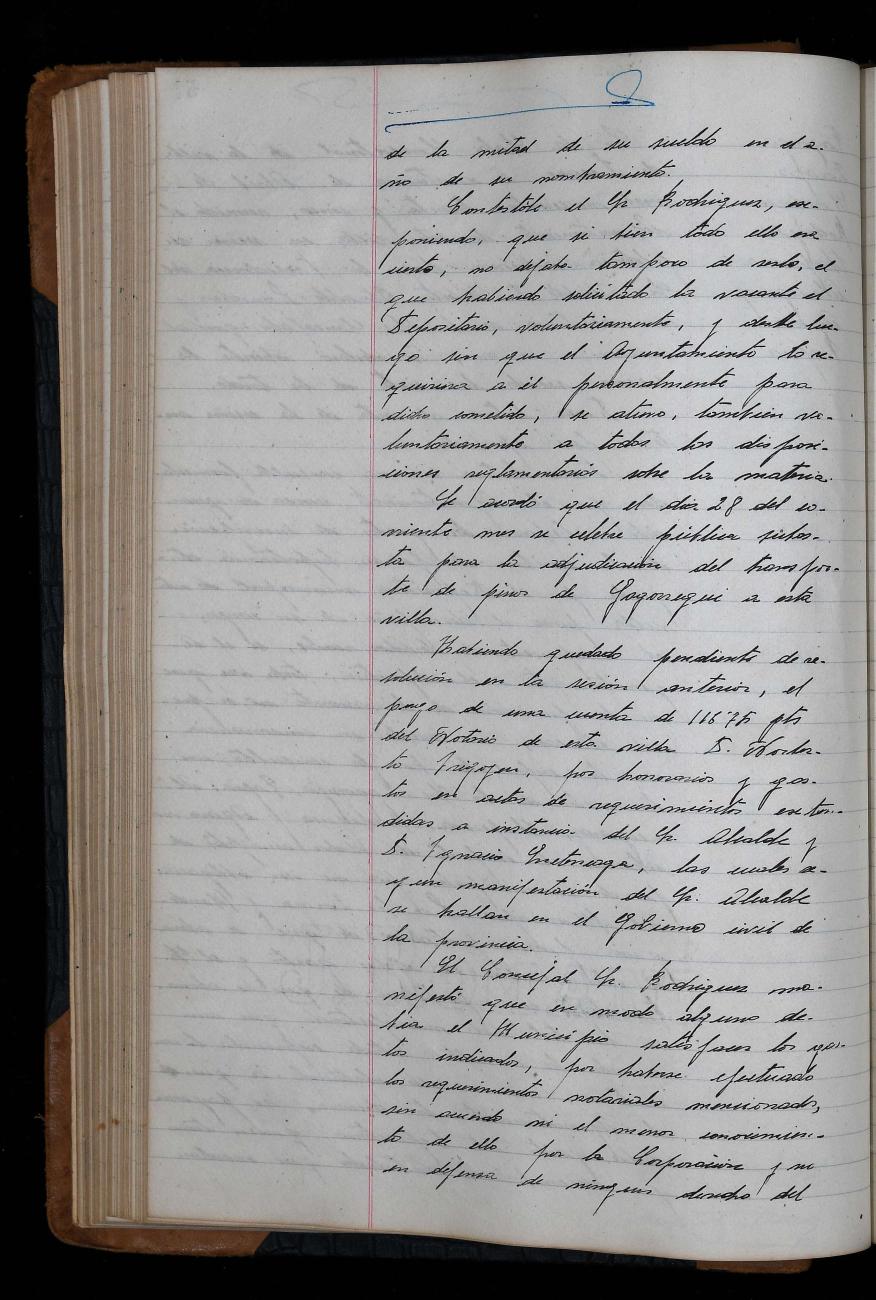 de la mitad de su sueldo en el a-
ño de su nombramiento.
Contestóle el Sr. Rodriguez, ex-
poniendo, que si bien todo ello era
cierto, no dejaba tampoco de serlo, el
que habiendo solicitado la vacante el
Depositario, voluntariamente, y desde lue-
go sin que el Ayuntamiento lo re-
quiriera a él personalmente para
dicho cometido, se atuvo, tambien vo-
luntariamente a todas las disposi-
ciones reglamentarias sobre la materia.
Se acordó que el dia 28 del co-
rriente mes se celebre pública subas-
ta para la adjudicación del transpor-
te de pinos de Gogorregui a esta
villa.
Habiendo quedado pendiente de re-
solución en la sesión anterior, el
pago de una cuenta de 116'75 pts
del Notario de esta villa D. Norber-
to Irigoyen, por honorarios y gas-
tos en actas de requerimientos exten-
didas a instancia del Sr. Alcalde y
D. Ignacio, las cuales se-
gun manifestación del Sr. Alcalde
se hallan en el Gobierno civil de
la provincia.
El Concejal Sr. Rodriguez ma-
nifestó que en modo alguno de-
bia el Municipio satisfacer los gas-
tos indicados, por haberse efectuado
los requerimientos notariales mencionados,
sin acuerdo ni el menor conocimien-
to de ello por la Corporación y no
en defensa de ningun derecho del